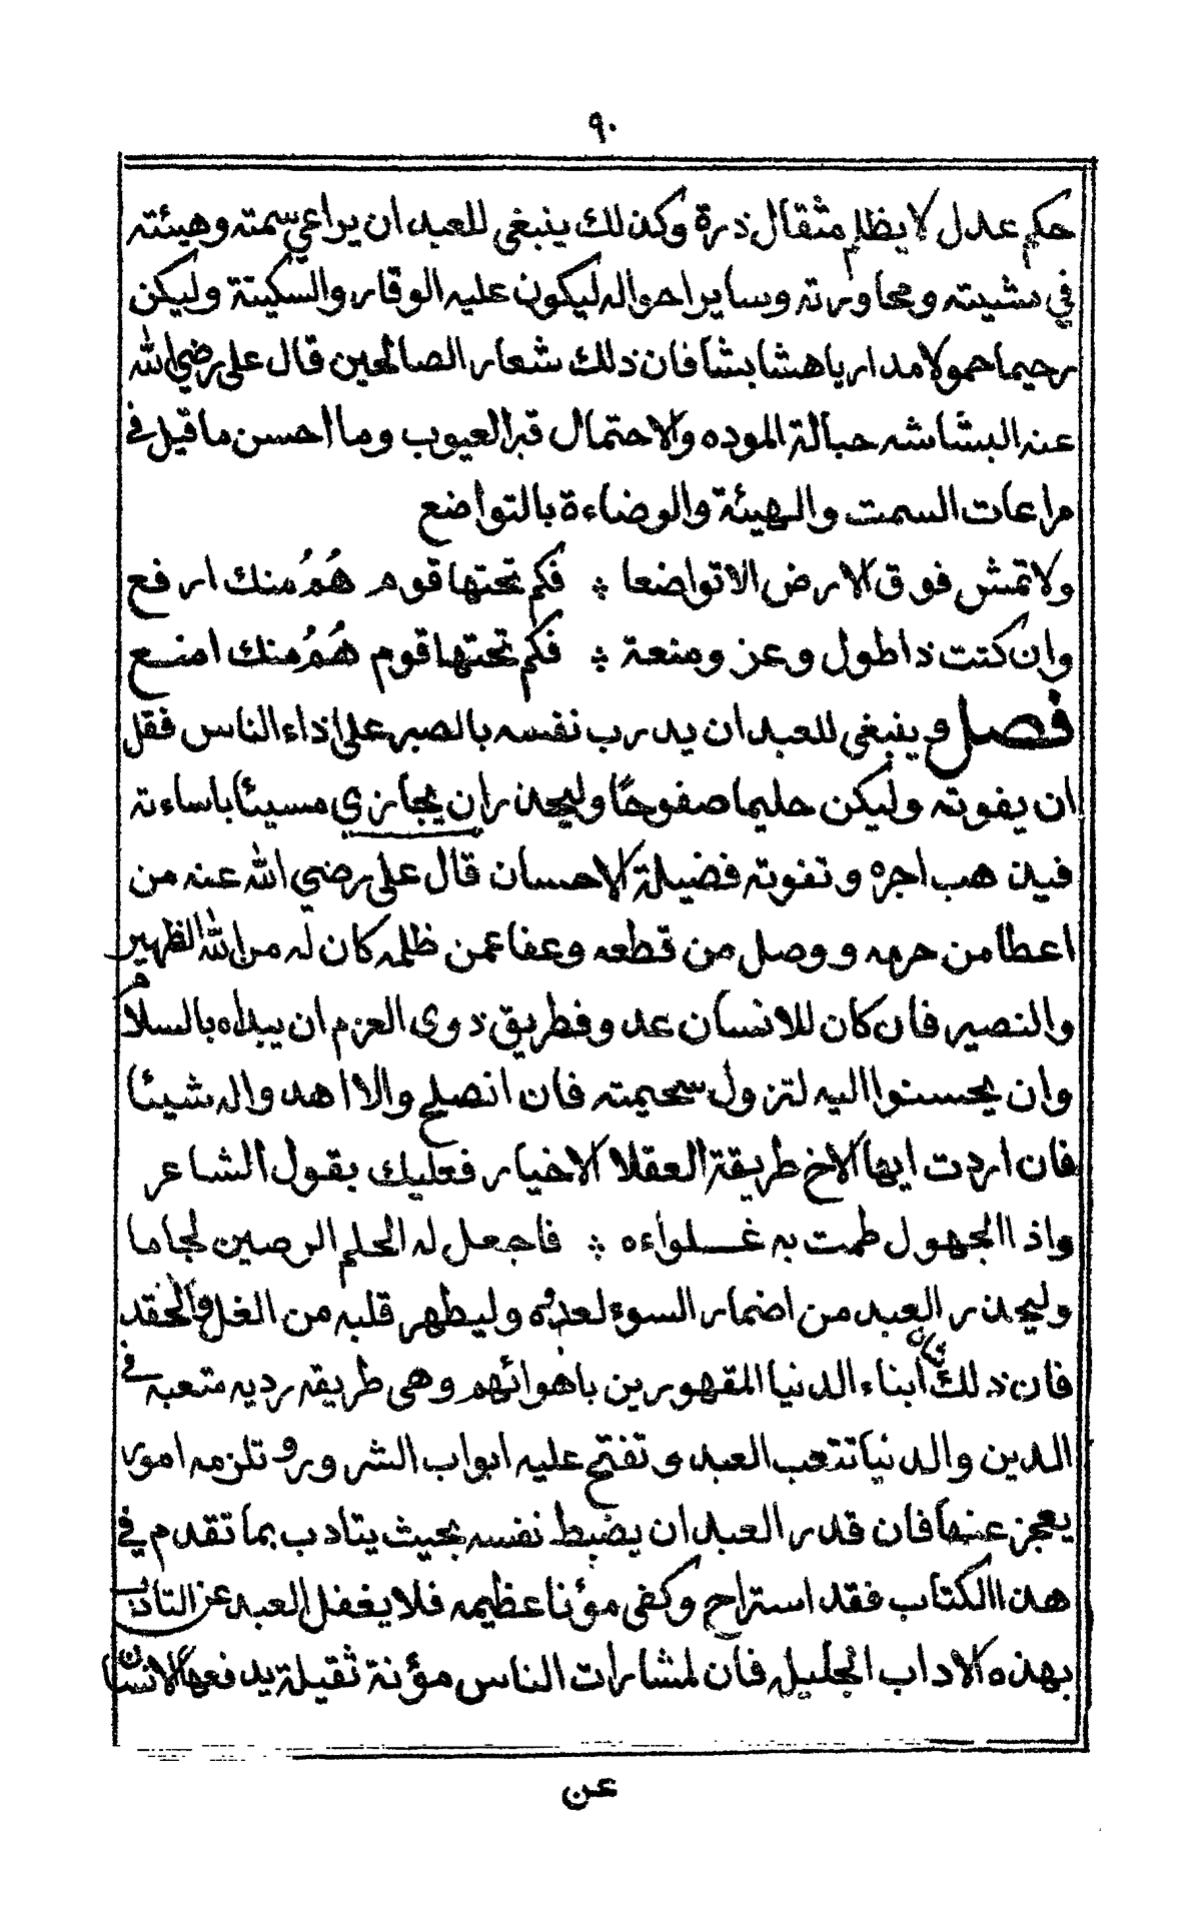 ٩٠
حكم عدل لا يظلم مثقال ذرة وكذلك ينبغي للعبد ان يراعي سمته وهيئته
في مشيته ومحاورته وساير احواله ليكون عليه الوقار والسكينة وليكن
رحيما حمولا مداريا هشا بشا فان ذلك شعار الصالحين قال على رضي الله
عنه البشاشه حبالة الموده والاحتمال قبر العيوب وما احسن ما قيل في
مراعات السمت والهيئة والوضاءة بالتواضع
ولا تمش فوق الارض الا تواضعا ؞ فكم تحتها قوم هُمُ منك ارفع
وان كنت ذا طول وعز ومنعة ؞ فكم تحتها قوم هُمُ منك امنع
فصل وينبغي للعبد ان يدرب نفسه بالصبر على اذاء الناس فقل
ان يفوته وليكن حليما صفوحًا وليحذر ان يجازي مسيئا باساءته
فيذهب اجره وتفوته فضيلة الاحسان قال على رضي الله عنه من
اعطا من حرمه ووصل من قطعه وعفا عمن ظلمه كان له من الله الظهير
والنصير فان كان للانسان عدو فطريق ذوى العزم ان يبداه بالسلام
وان يحسنوا اليه لتزول سحيمته فان انصلح والا اهدوا له شيئا
فان اردت ايها الاخ طريقة العقلا الاخيار فعليك بقول الشاعر
واذا الجهول طمت به غلواءه ؞ فاجعل له الحلم الرصين لجاما
وليحذر العبد من اضمار السوء لعدوه وليطهر قلبه من الغل والحقد
فان ذلك شان ابناء الدنيا المقهورين باهوائهم وهى طريقه رديه متعبه في
الدين والدنيا تتعب العبد وتفتح عليه ابواب الشرور وتلزمه امور
يعجز عنها فان قدر العبد ان يضبط نفسه بحيث يتادب بما تقدم في
هذا الكتاب فقد استراح وكفى مؤنا عظيمه فلا يغفل العبد عن التادب
بهذه الاداب الجليله فان لمشارات الناس مؤنة ثقيلة يدفعها الانسان
عن